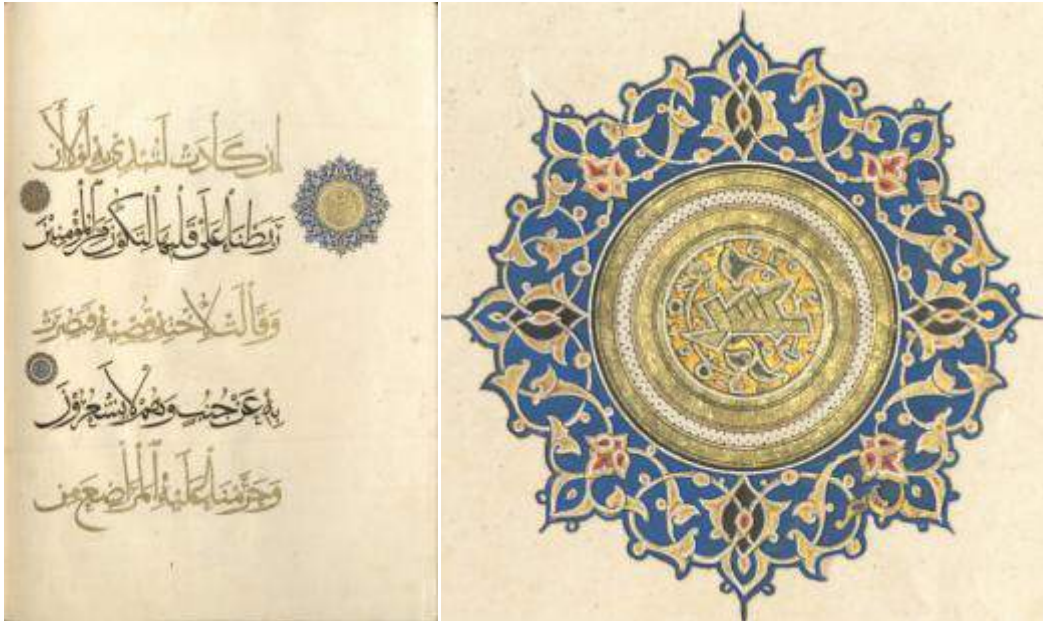 إِن كَادَتْ لَتُبْدِي بِهِ لَوْلَا أَن
رَبَطْنَا عَلَى قَلْبِهَا لِتَكُونَ مِنَ الْمُؤْمِنِينَ
وَقَالَتْ لِأُخْتِهِ قُصِّيهِ فَبَصُرَتْ
بِهِ عَن جُنُبٍ وَهُمْ لَا يَشْعُرُونَ
وَحَرَّمْنَا عَلَيْهِ الْمَرَاضِعَ مِن